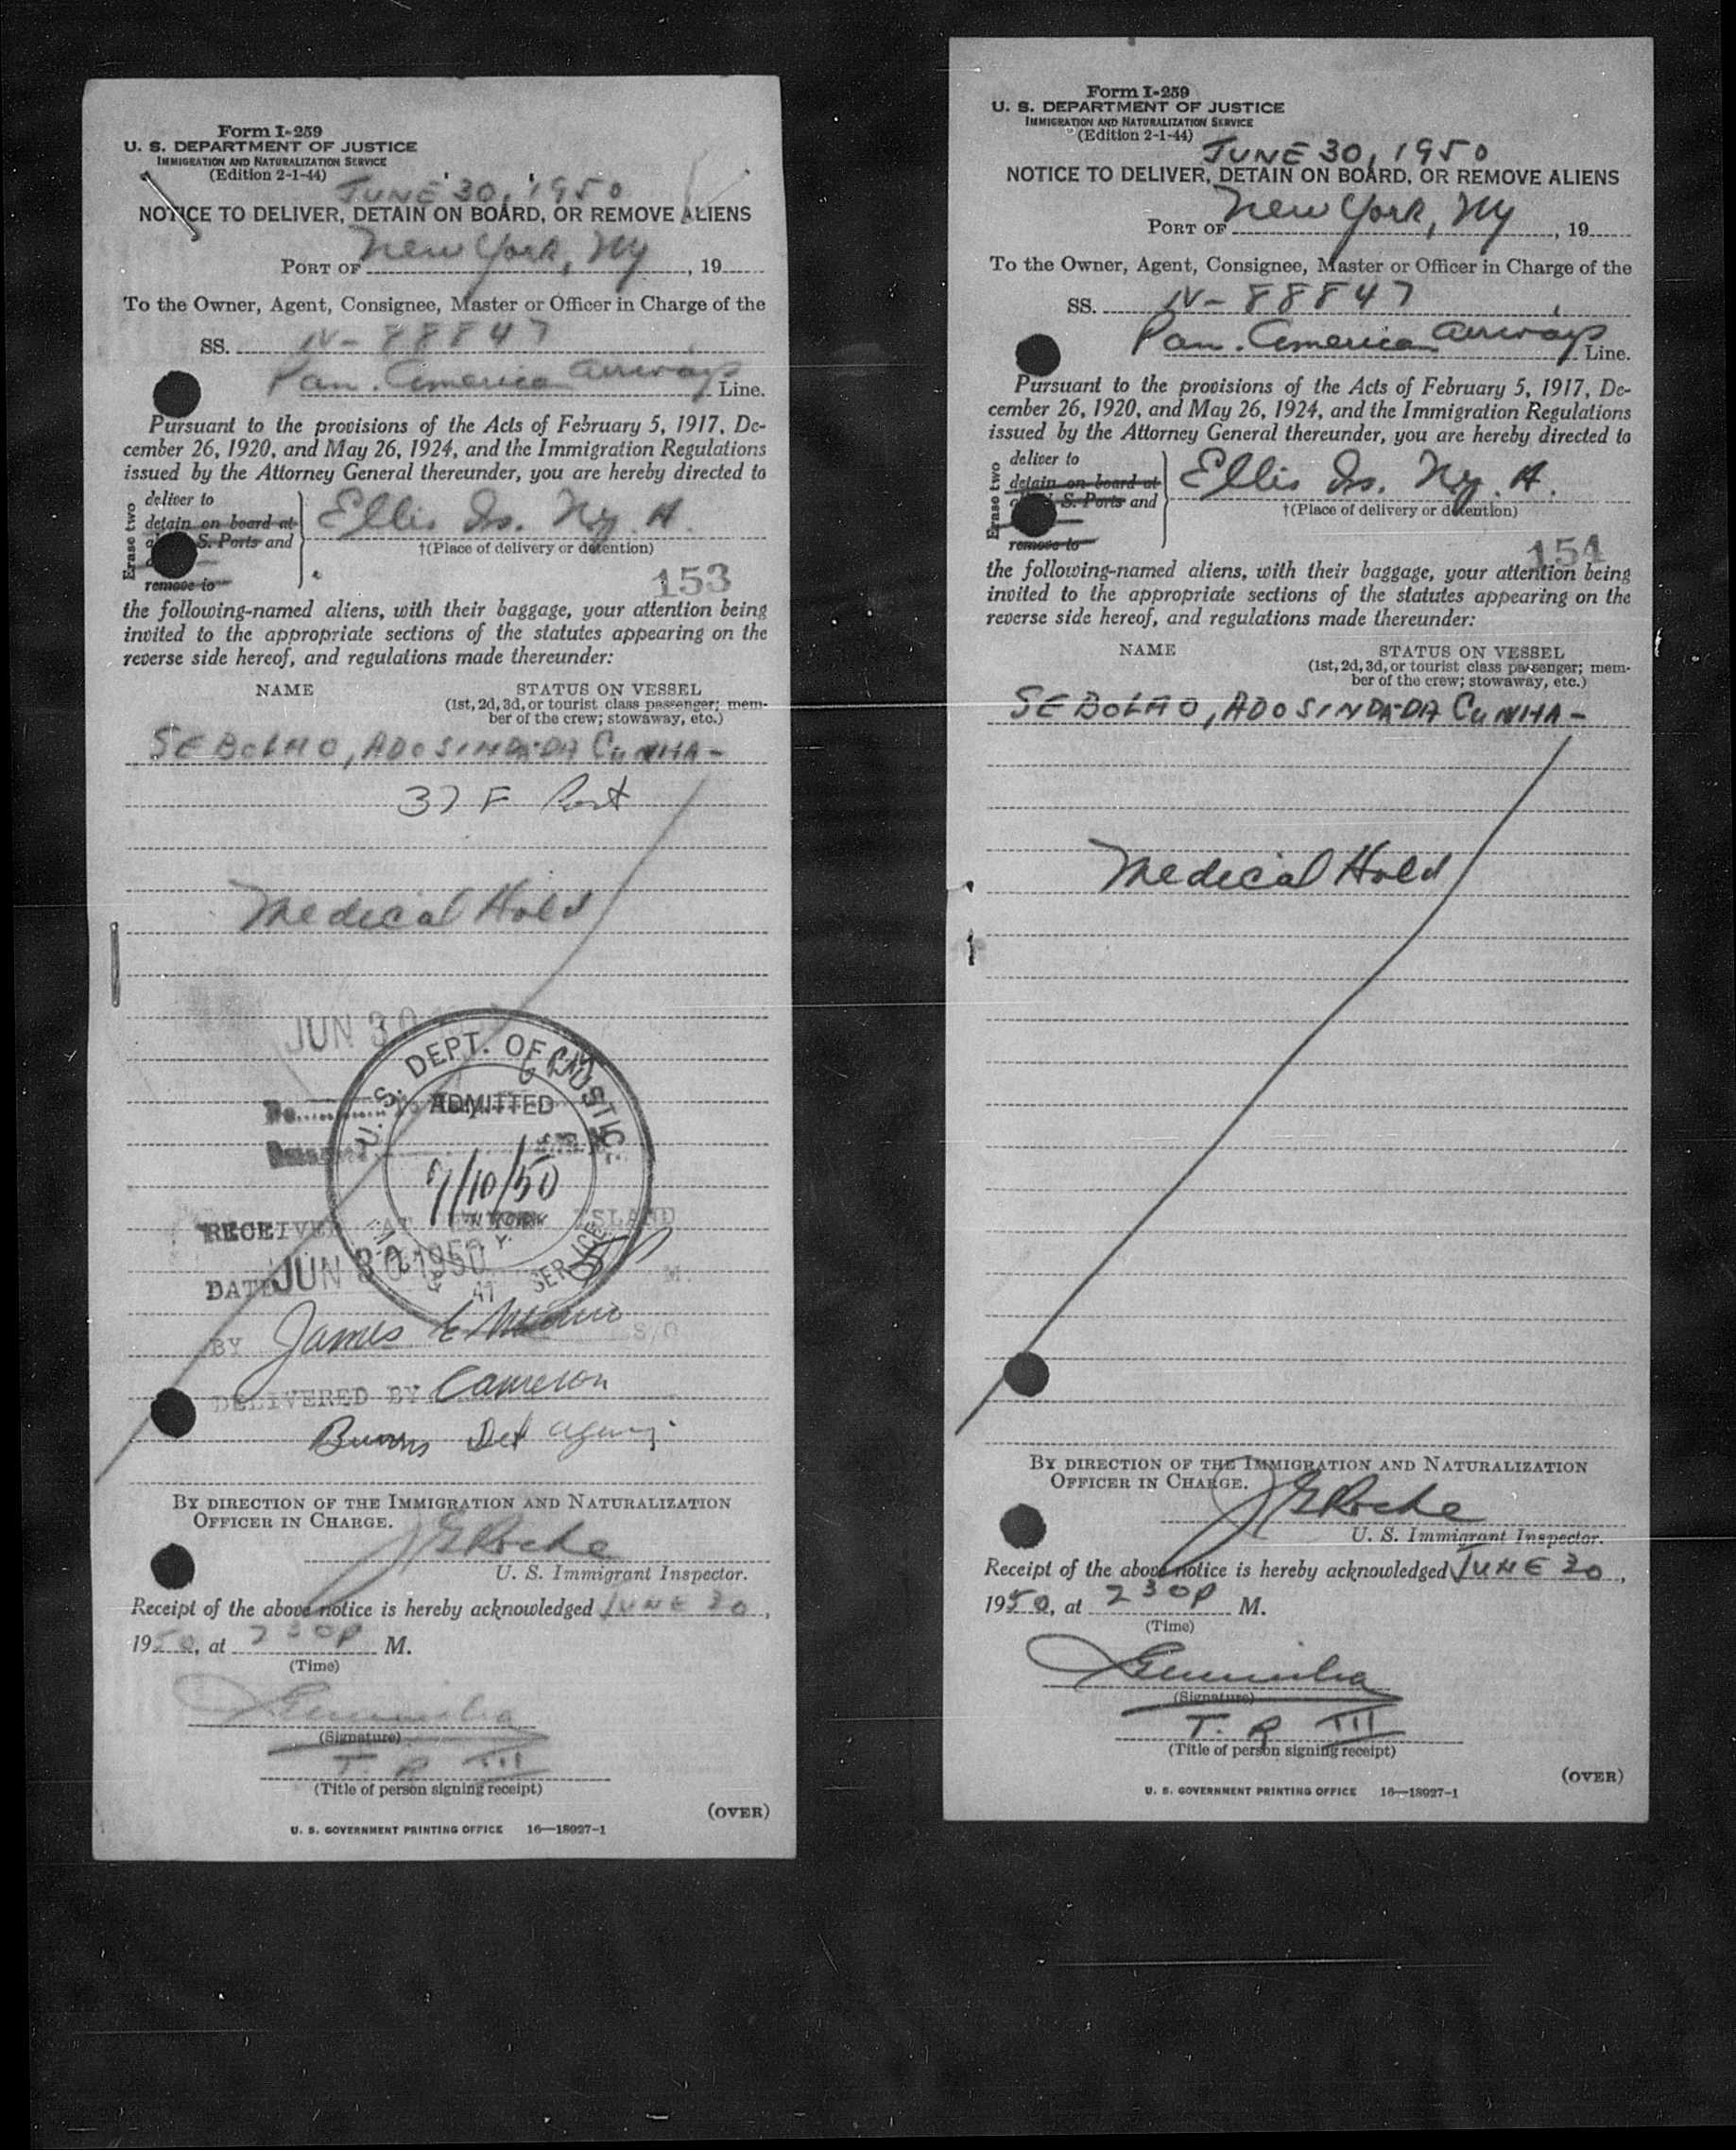 Form I-259
U. S. DEPARTMENT OF JUSTICE
IMMIGRATION AND NATURALIZATION SERVICE
(Edition 2-1-44)
JUNE 30, 1950
NOTICE TO DELIVER, DETAIN ON BOARD, OR REMOVE ALIENS
PORT OF New York, Ny, 19
To the Owner, Agent, Consignee, Master or Officer in Charge of the
SS. N-88847
Pan. America Airways Line.
Pursuant to the provisions of the Acts of February 5, 1917, De-
cember 26, 1920, and May 26, 1924, and the Immigration Regulations
issued by the Attorney General thereunder, you are hereby directed to
Erase two
deliver to
detain on board at
S. Ports and
remove to
Ellis Is. Ny. H.
†(Place of delivery or detention)
153
the following-named aliens, with their baggage, your attention being
invited to the appropriate sections of the statutes appearing on the
reverse side hereof, and regulations made thereunder:
NAME STATUS ON VESSEL
(1st, 2d, 3d, or tourist class passenger; mem-
ber of the crew; stowaway, etc.)
SEBOLAO, ADOSINDA-DA CUNHA-
37 F Port
Medical Hold
JUN 30
U. S. DEPT. OF JUSTIC
ADMITTED
7/10/50
N. Y.
SERVICE
RECEIVED AT ISLAND
DATE JUN 30 1950 M.
BY James E S/O
DELIVERED BY Cameron
Burns Det Agency
BY DIRECTION OF THE IMMIGRATION AND NATURALIZATION
OFFICER IN CHARGE.
J G Roche
U. S. Immigrant Inspector.
Receipt of the above notice is hereby acknowledged JUNE 30,
1950, at 230P M.
(Time)
(Signature)
T. R III
(Title of person signing receipt)
(OVER)
U. S. GOVERNMENT PRINTING OFFICE 16—18927-1
Form I-259
U. S. DEPARTMENT OF JUSTICE
IMMIGRATION AND NATURALIZATION SERVICE
(Edition 2-1-44)
JUNE 30, 1950
NOTICE TO DELIVER, DETAIN ON BOARD, OR REMOVE ALIENS
PORT OF New York, Ny, 19
To the Owner, Agent, Consignee, Master or Officer in Charge of the
SS. N-88847
Pan. America Airways Line.
Pursuant to the provisions of the Acts of February 5, 1917, De-
cember 26, 1920, and May 26, 1924, and the Immigration Regulations
issued by the Attorney General thereunder, you are hereby directed to
Erase two
deliver to
detain on board at
S. Ports and
remove to
Ellis Is. Ny. H.
†(Place of delivery or detention)
154
the following-named aliens, with their baggage, your attention being
invited to the appropriate sections of the statutes appearing on the
reverse side hereof, and regulations made thereunder:
NAME STATUS ON VESSEL
(1st, 2d, 3d, or tourist class passenger; mem-
ber of the crew; stowaway, etc.)
SEBOLAO, ADOSINDA-DA CUNHA-
Medical Hold
BY DIRECTION OF THE IMMIGRATION AND NATURALIZATION
OFFICER IN CHARGE.
J G Roche
U. S. Immigrant Inspector.
Receipt of the above notice is hereby acknowledged JUNE 30,
1950, at 230P M.
(Time)
(Signature)
T. R III
(Title of person signing receipt)
(OVER)
U. S. GOVERNMENT PRINTING OFFICE 16—18927-1